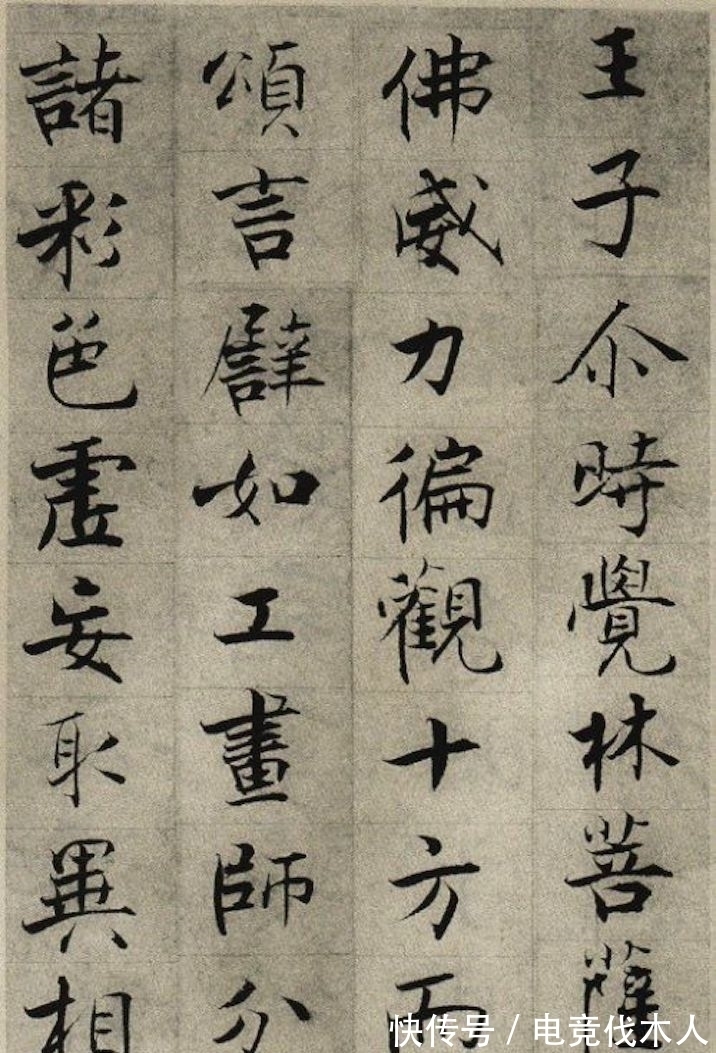 王子尒時覺林菩薩
佛威力徧觀十方而
頌言譬如工畫師分
諸彩色虛妄取異相
快传号/电竞伐木人